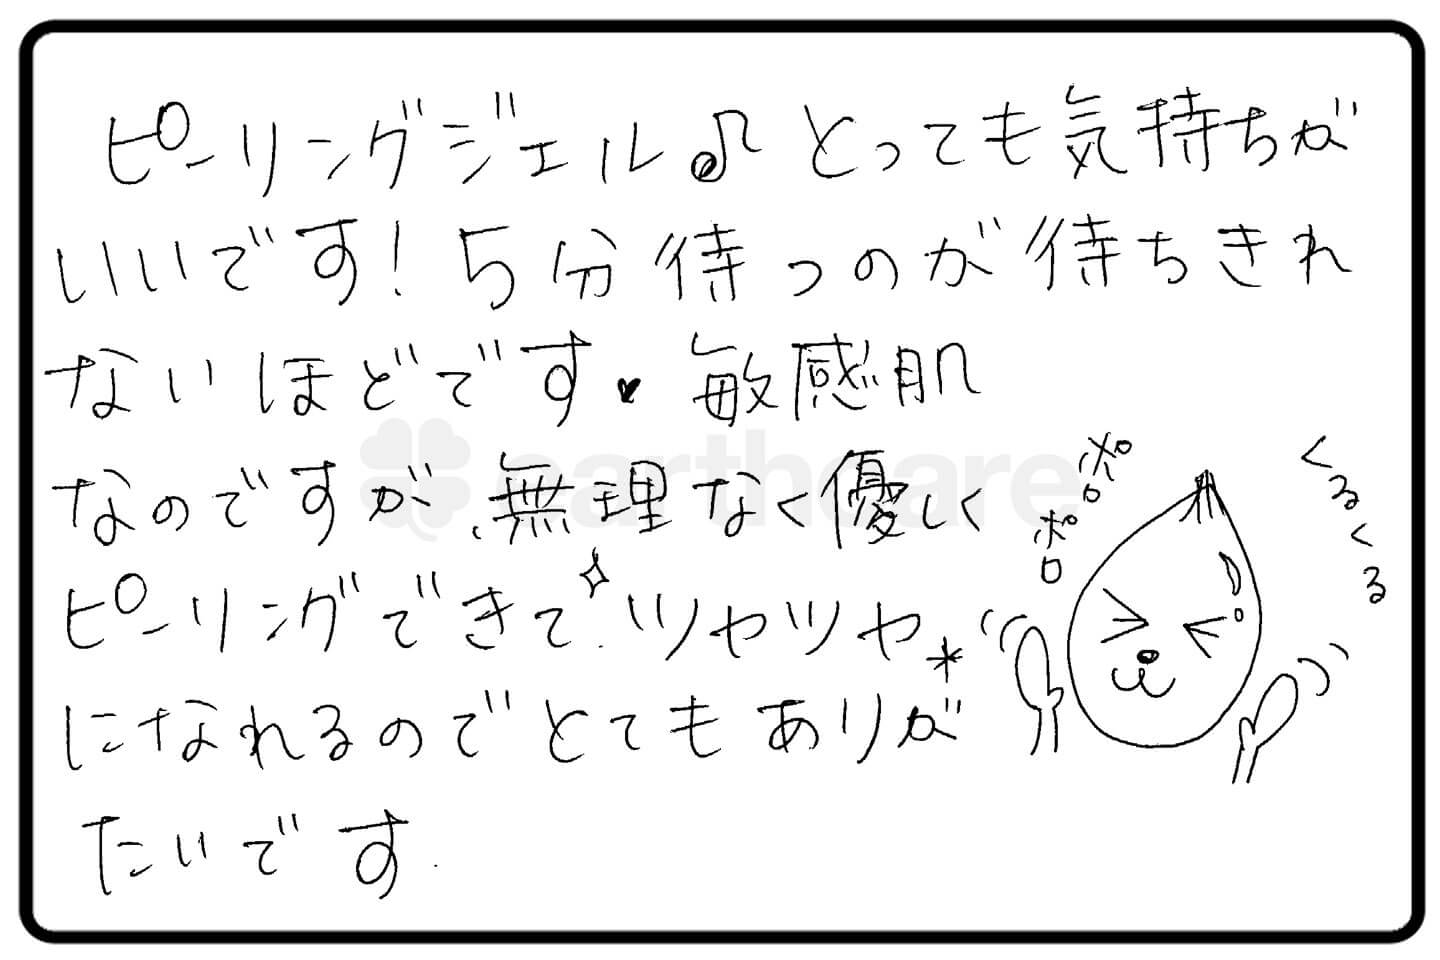 ピーリングジェル♪とっても気持ちが
いいです!5分待つのが待ちきれ
ないほどです♥敏感肌
なのですが、無理なく優しく
ピーリングできて、ツヤツヤ
になれるのでとてもありが
たいです.
ポロ
ポロ
くるくる
earthcare